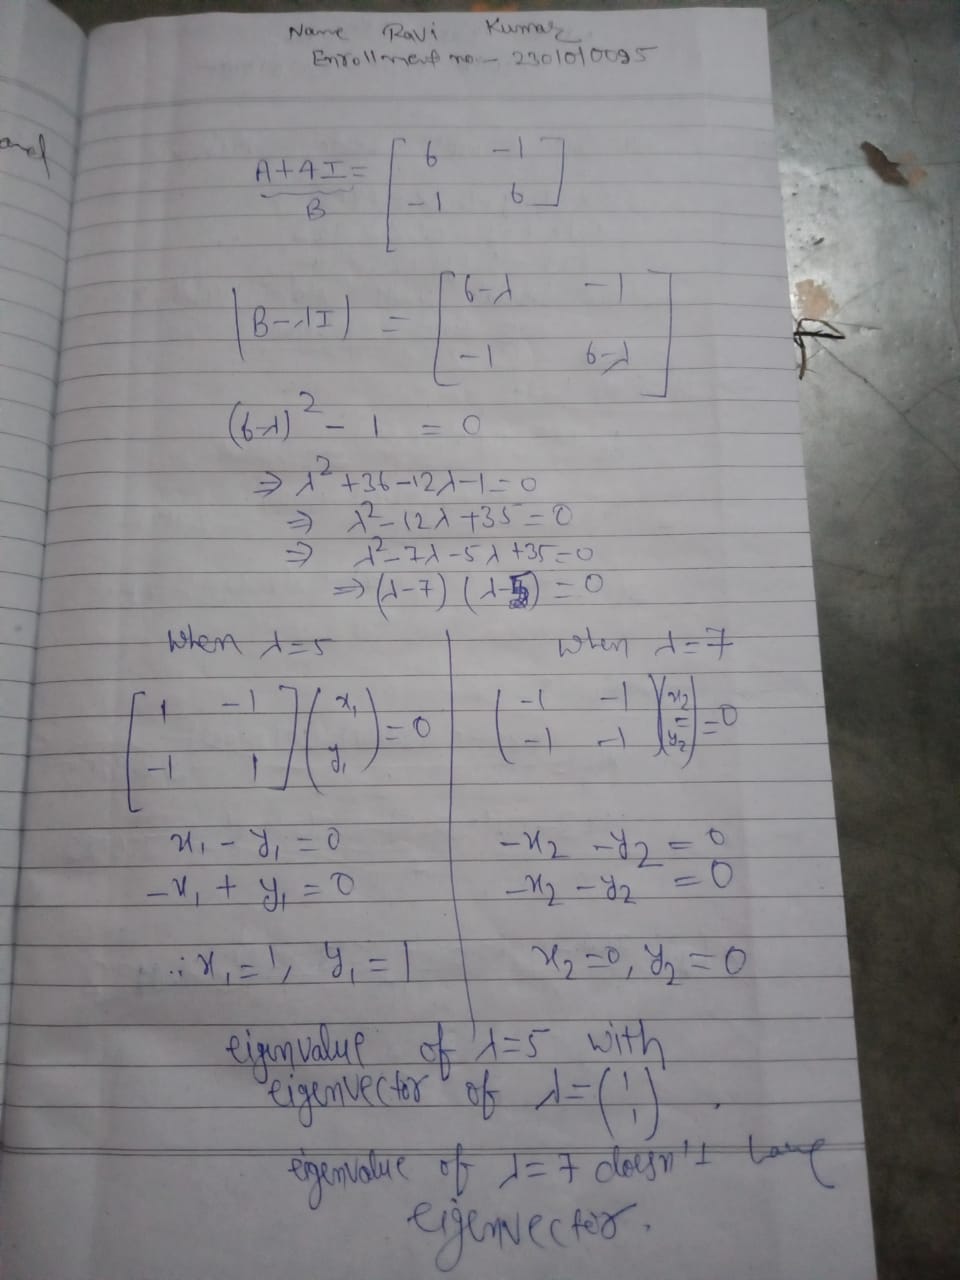 and
Name Ravi Kumar
Enrollment no - 2301010095
A+4I = [ 6 -1
B -1 6 ]
|B-λI| = [ 6-λ -1
-1 6-λ ]
(6-λ)² - 1 = 0
⇒ λ² +36-12λ-1=0
⇒ λ²-12λ+35=0
⇒ λ²-7λ-5λ+35=0
⇒ (λ-7) (λ-5) = 0
when λ=5
[ 1 -1
-1 1 ] ( x₁
y₁ ) = 0
x₁ - y₁ = 0
-x₁ + y₁ = 0
∴ x₁ = 1, y₁ = 1
when λ=7
( -1 -1
-1 -1 ) ( x₂
y₂ ) = 0
-x₂ - y₂ = 0
-x₂ - y₂ = 0
x₂ = 0, y₂ = 0
eigenvalue of λ=5 with
eigenvector of λ= ( 1
1 ) .
eigenvalue of λ=7 doesn't have
eigenvector.